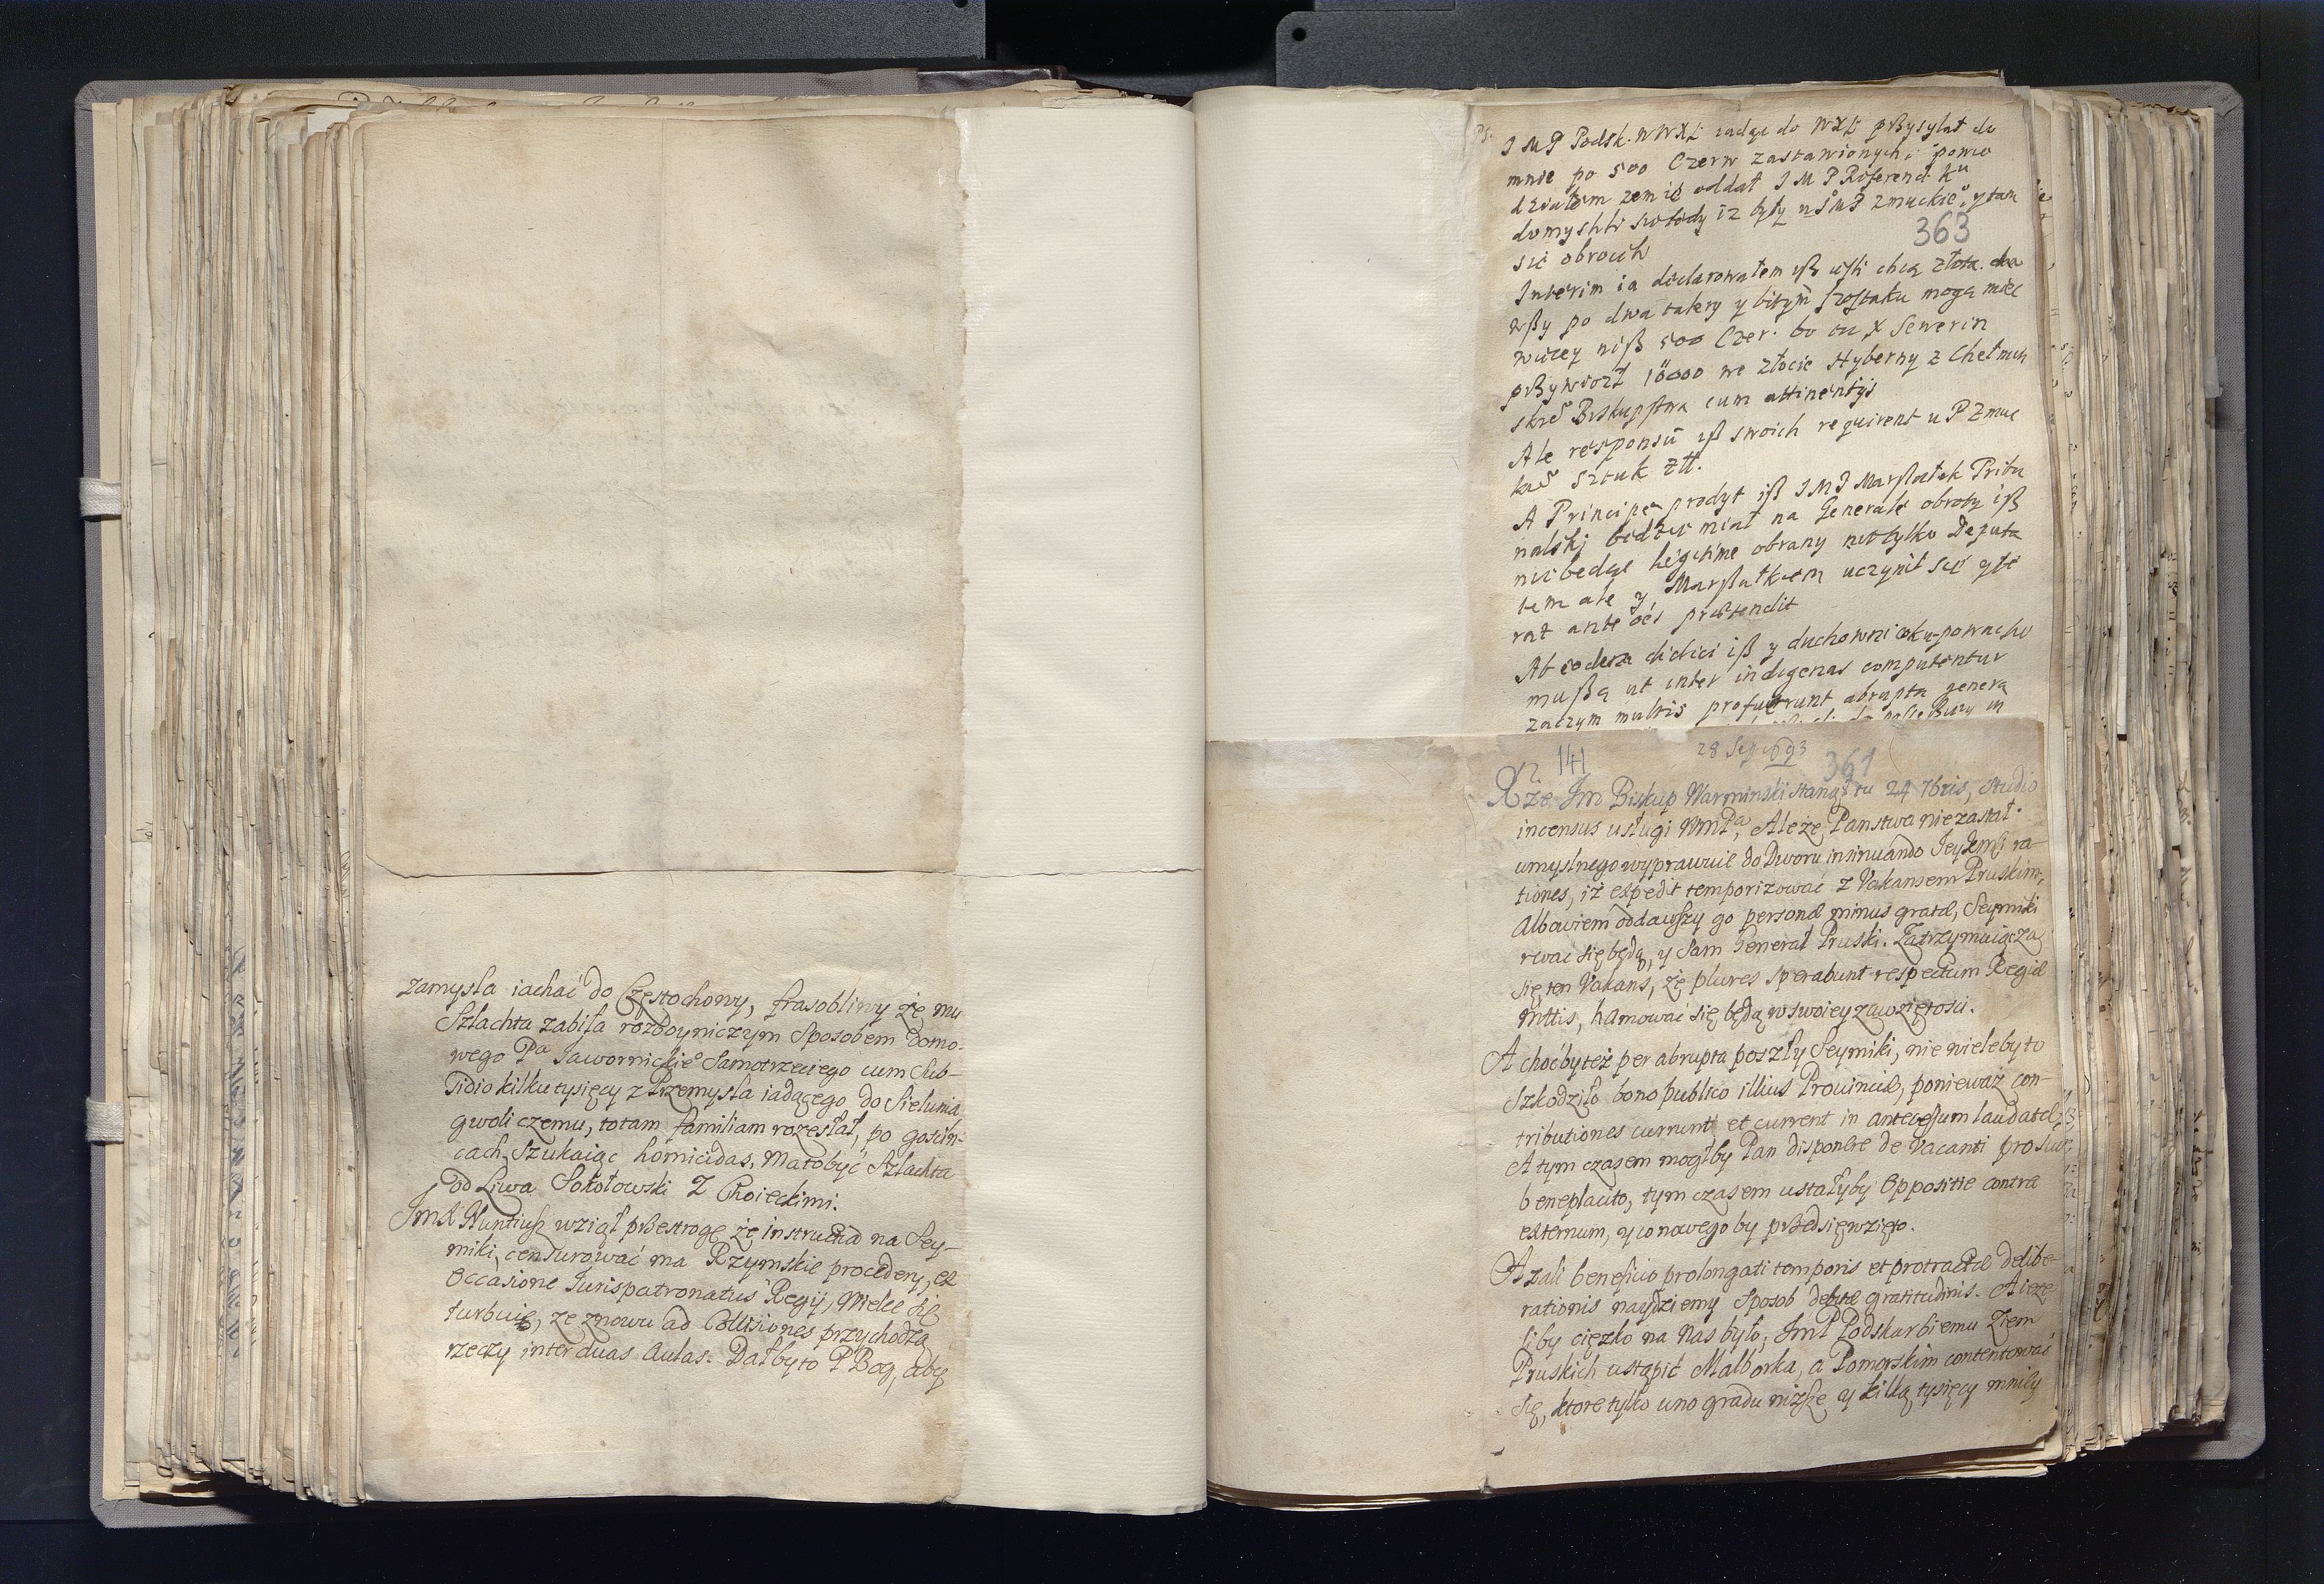 zamysla iachać do Częstochowy, frasobliwy że mu
Szlachta zabiła rozboyniczym Sposobem domo-
wego Pa Jawornickieo Samotrzeciego cum sub-
sidio kilku tysięcy z Przemysla iadącego do Sielunia
gwoli czemu, totam familiam rozesłał, po gościń-
cach, Szukaiąc homicidas, Matobyć Szlachta
od Liwa Sokołowski Z Choieckimi.
JmX Nuntiusz wziął przestrogę że instructia na Sey-
miki, censurować ma Rzymskie procedery, ex
occasione Jurispatronatus Regij, Wielce się
turbuie, że znowu ad Collisiones przychodzą
rzeczy inter duas Aulas. Dałbyto P Bog, aby
Ps.
J M P Podsk. WWXL iadąc do WXL przysyłał do
mnie po 500 Czerw zastawionych i powie
działem zem ie oddał J M P Referend. Ku
domyslili sie tedy iz były u JMP Zmuckieo, y tam
363
sie obrocili
Interim ia declarowałem isz iesli chcą złota. da
wszy po dwa talery y bitym szostaku mogą miec
wiecey nisz 500 Czer. bo tu X Sewerin
przywiozł 10000 we złocie Hyberny z Chełmin
skieo Biskupstwa cum attinentijs
Ale responsu isz swoich requirent u P Zmuc
kieo sztuk zll.
A Principe prodyt isz J M P Marszałek Tribu
nalski bedzie miał na Generale obroty isz
nie bedąc legitime obrany nie tylko Deputa
tem ale y Marszałkiem uczynił sie y be
rał ante oes prætendit
Ab eodem didici isz y duchowni okupowac sie
muszą ut inter indigenas computentur
zaczym multis profuerunt abrupta genera
N. 141
28 7bris 1693
361
Xze Jm Biskup Warminski stanął tu 24 7bris, studio
incensus usługi WmPa, Ale że Panstwa nie zastał.
umyslnego wyprawuie do Dworu insinuando Jey Kmsci ra-
tiones, iż expedit temporizować z Vakansem Pruskim,
Albowiem oddawszy go personæ minus gratæ, Seymiki
rwać się będą, y sam Generał Pruski. Zatrzymuiąc zaś
się ten Vakans, że plures sperabunt respectum Regiæ
Mttis, hamować się będą w swoiey zawziętosci.
A choćby też per abrupta poszły Seymiki, nie wieleby to
Szkodziło bono publico illius Prouinciæ, ponieważ con-
tributiones currunt et current in antecessum laudatæ,
A tym czasem mogłby Pan disponere de Vacanti pro suo
beneplacito, tym czasem ustałyby Oppositie contra
externum, y co nowego by przedsięwzięto.
Azali beneficio prolongati temporis et protractæ delibe-
rationis naydziemy Sposob debitæ gratitudinis. A ieże-
liby ciężko na Nas było, JmP Podskarbiemu Ziem
Pruskich ustąpić Malborka, a Pomorskim contentować
się, ktore tylko uno gradu niższe y kilką tysięcy mniey